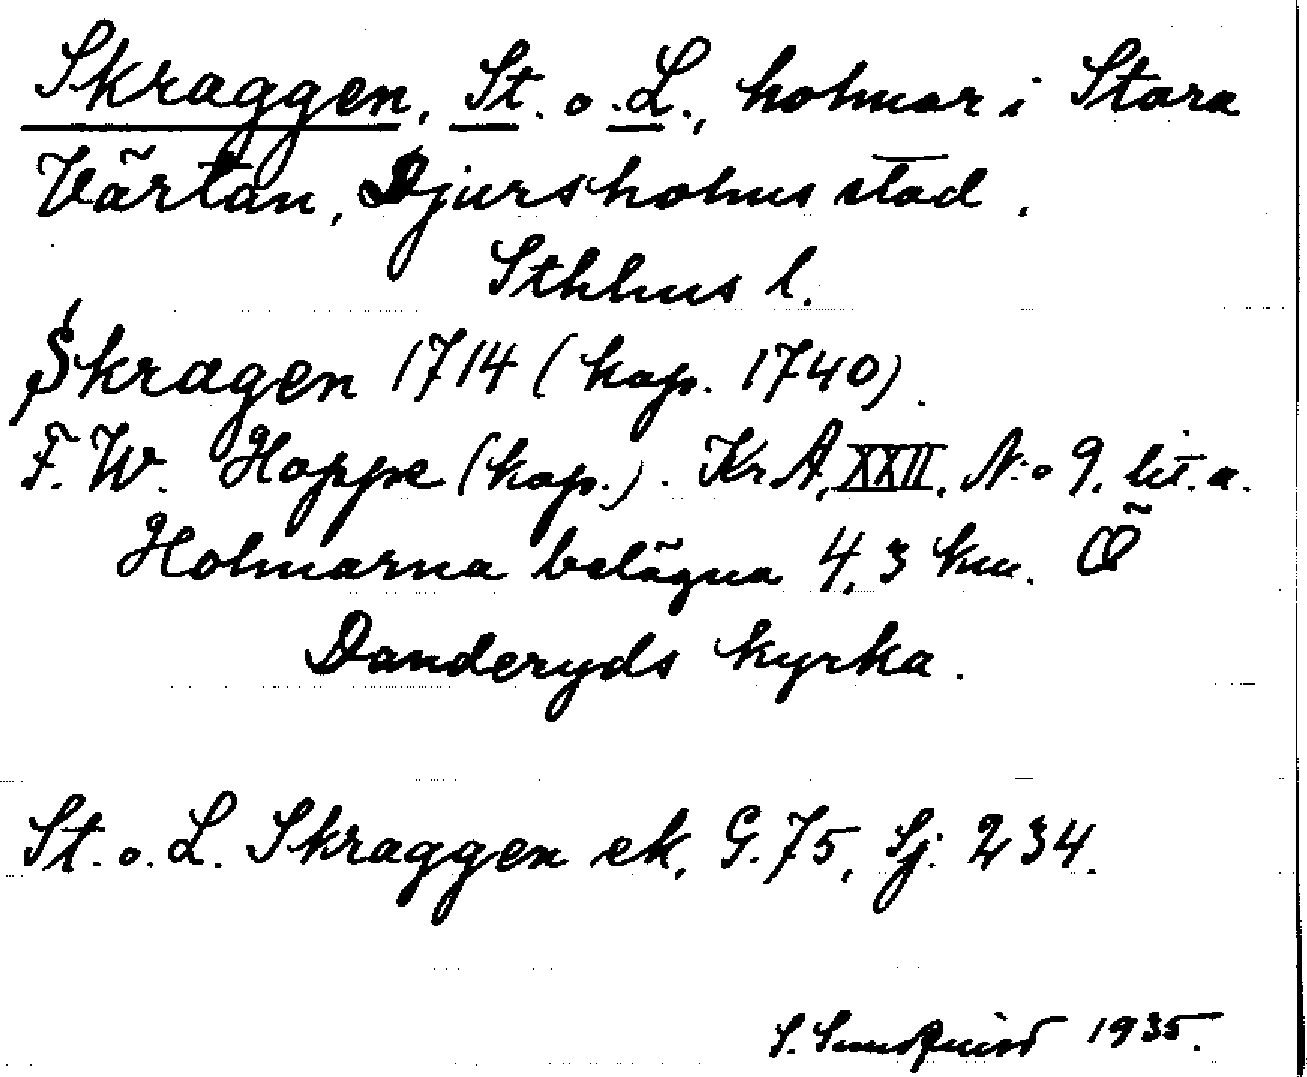 Skraggen, St. o. L., holmar i Stora
Värtan, Djursholms stad.
Sthlms l.
Skragen 1714 (kop. 1740).
F. W. Hoppe (kop.). Kr A, XXII, N:o 9. lit. a.
Holmarna belägna 4,3 km. Ö
Danderyds kyrka.
St. o. L. Skraggen ek, G. 75, Sj: 234.
S. Sundquist 1935.